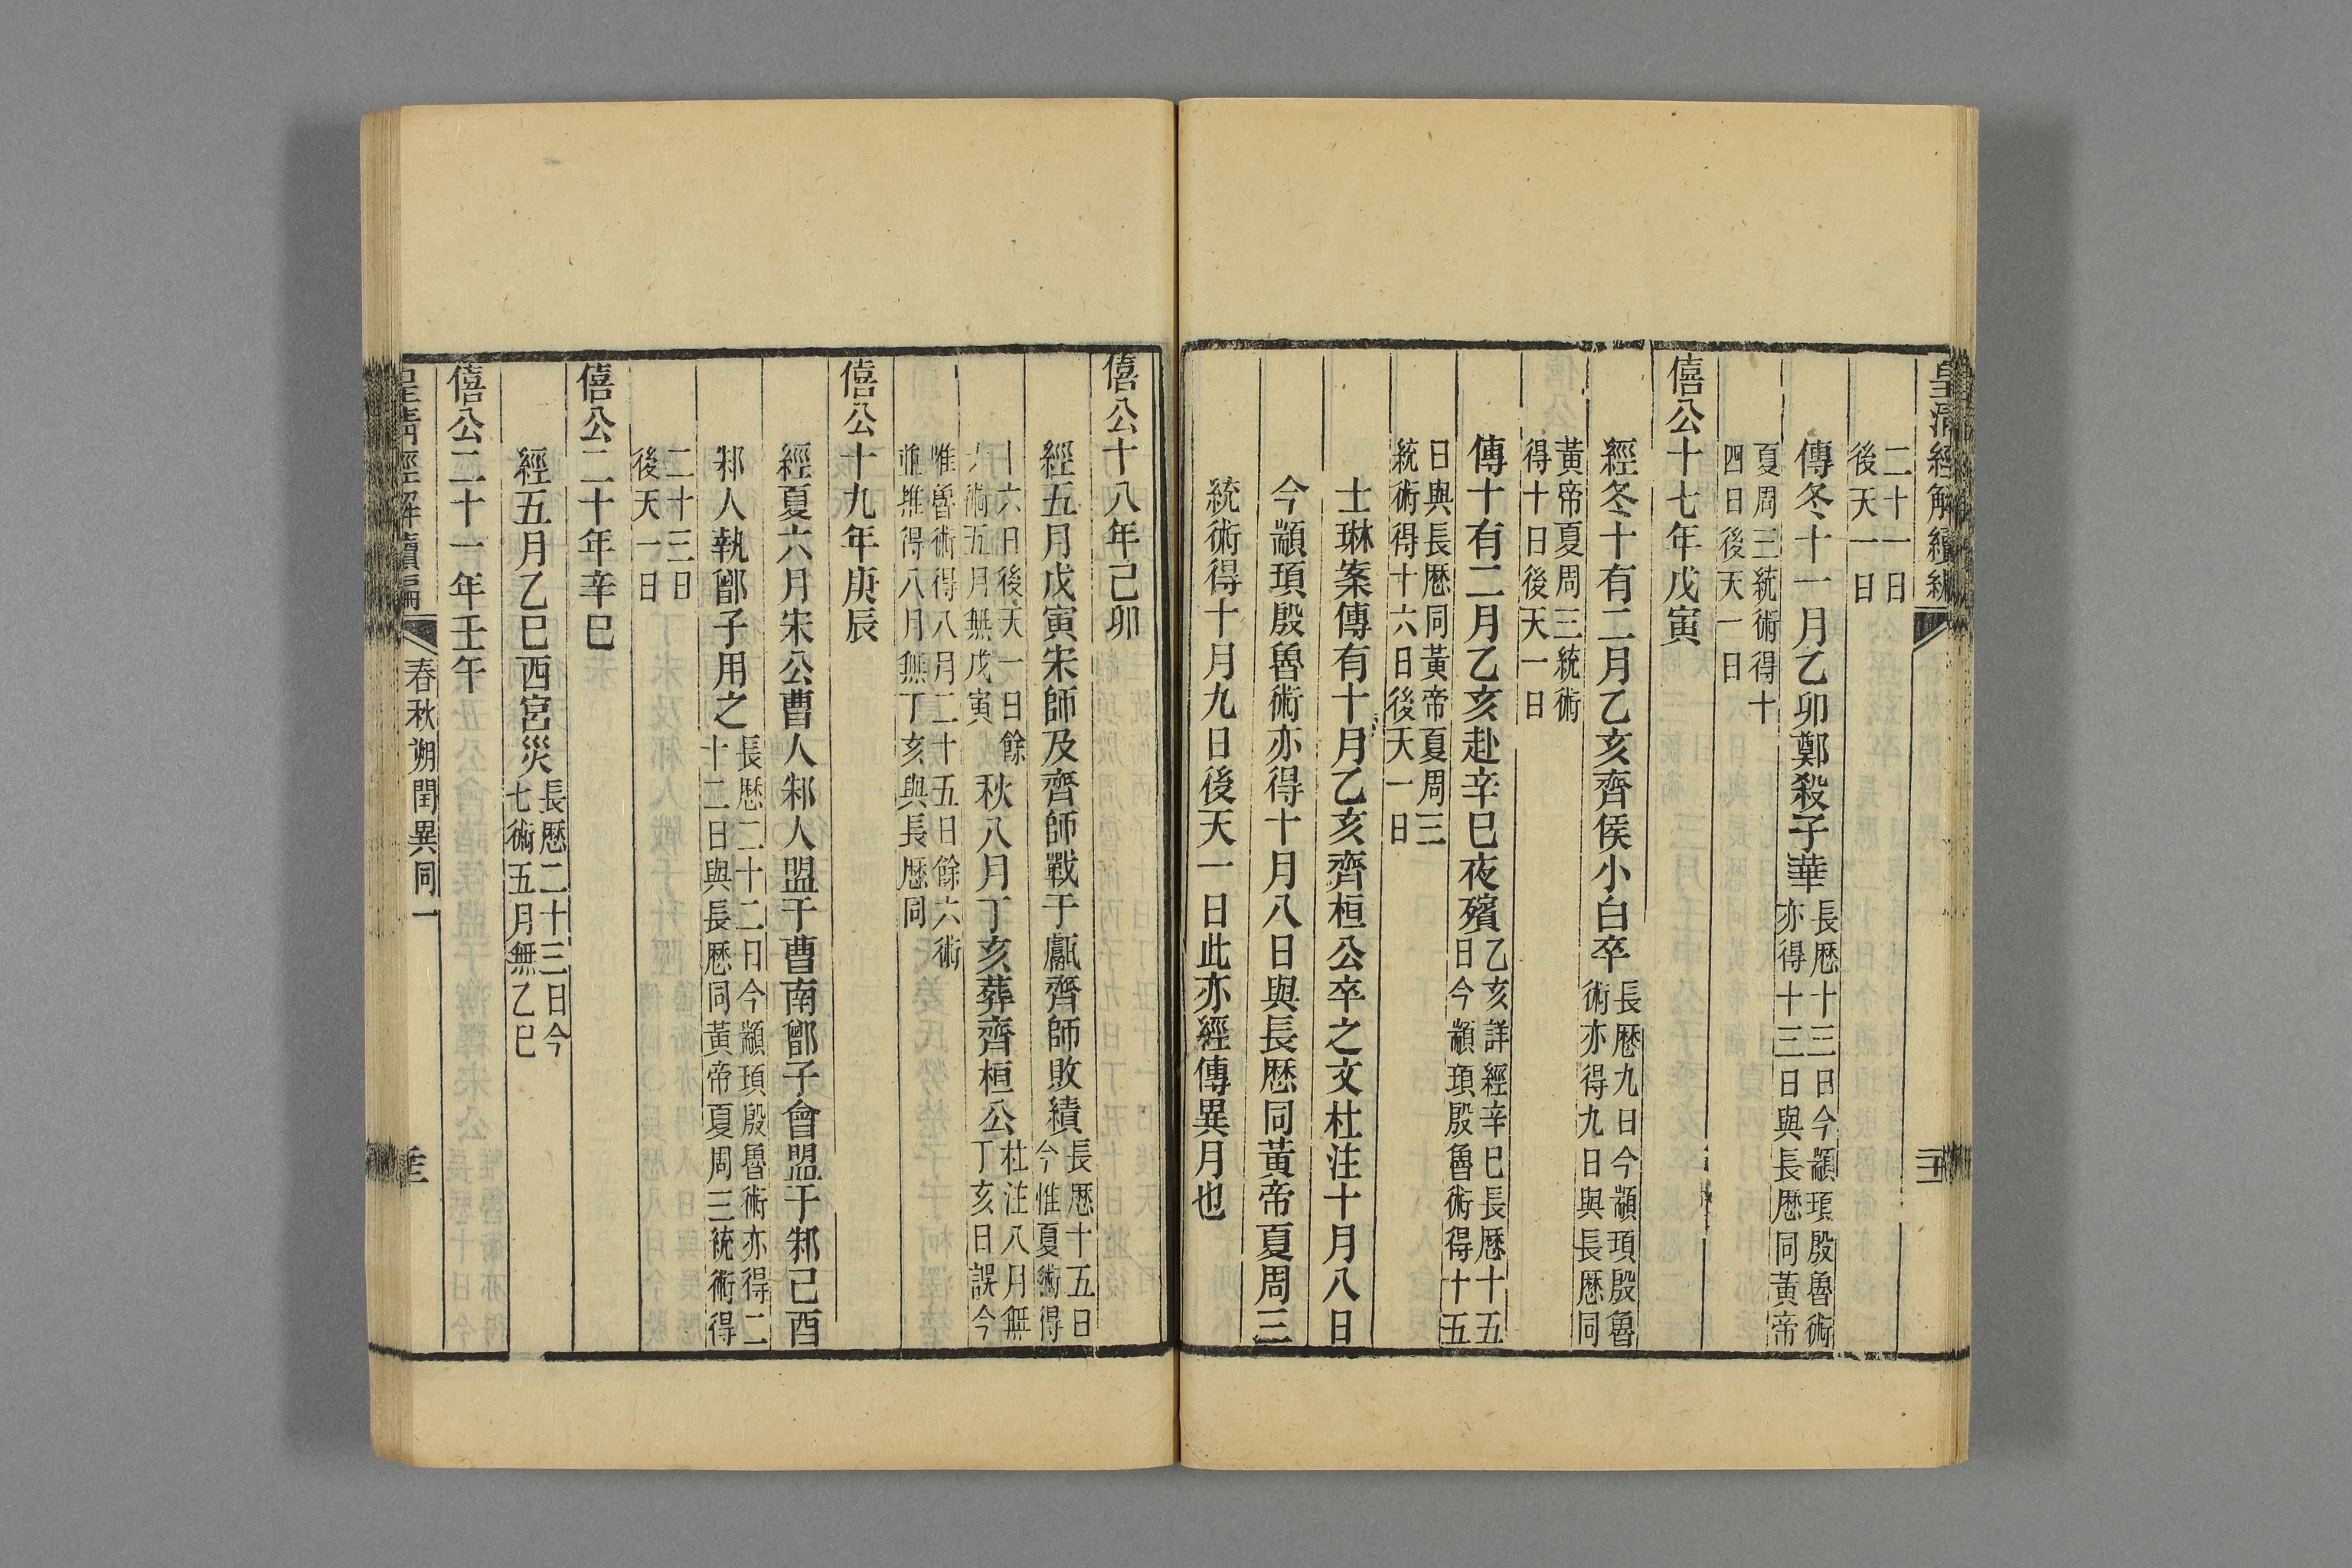 皇清經解續編
二十一日
後天一日
傳冬十一月乙卯鄭殺子華長厯十三日今顓頊殷魯術
亦得十三日與長厯同黃帝
夏周三統術得十
四日後天一日
僖公十七年戊寅
經冬十有二月乙亥齊侯小白卒長厯九日今顓頊殷魯
術亦得九日與長厯同
黃帝夏周三統術
得十日後天一日
傳十有二月乙亥赴辛巳夜殯乙亥詳經辛巳長厯十五
日今顓頊殷魯術得十五
日與長厯同黃帝夏周三
統術得十六日後天一日
士琳案傳有十月乙亥齊桓公卒之文杜注十月八日
今顓頊殷魯術亦得十月八日與長厯同黃帝夏周三
統術得十月九日後天一日此亦經傳異月也
僖公十八年己卯
經五月戊寅宋師及齊師戰于甗齊師敗績長厯十五日
今惟夏術得
十六日後天一日餘
六術五月無戊寅
秋八月丁亥葬齊桓公杜注八月無
丁亥日誤今
惟魯術得八月二十五日餘六術
推得八月無丁亥與長厯同
僖公十九年庚辰
經夏六月宋公曹人邾人盟于曹南鄫子會盟于邾己酉
邾人執鄫子用之長厯二十二日今顓頊殷魯術亦得二
十二日與長厯同黃帝夏周三統術得
二十三日
後天一日
僖公二十年辛巳
經五月乙巳西宮災長厯二十三日今
七術五月無乙巳
僖公二十一年壬午
皇清經解續編
春秋朔閏異同一